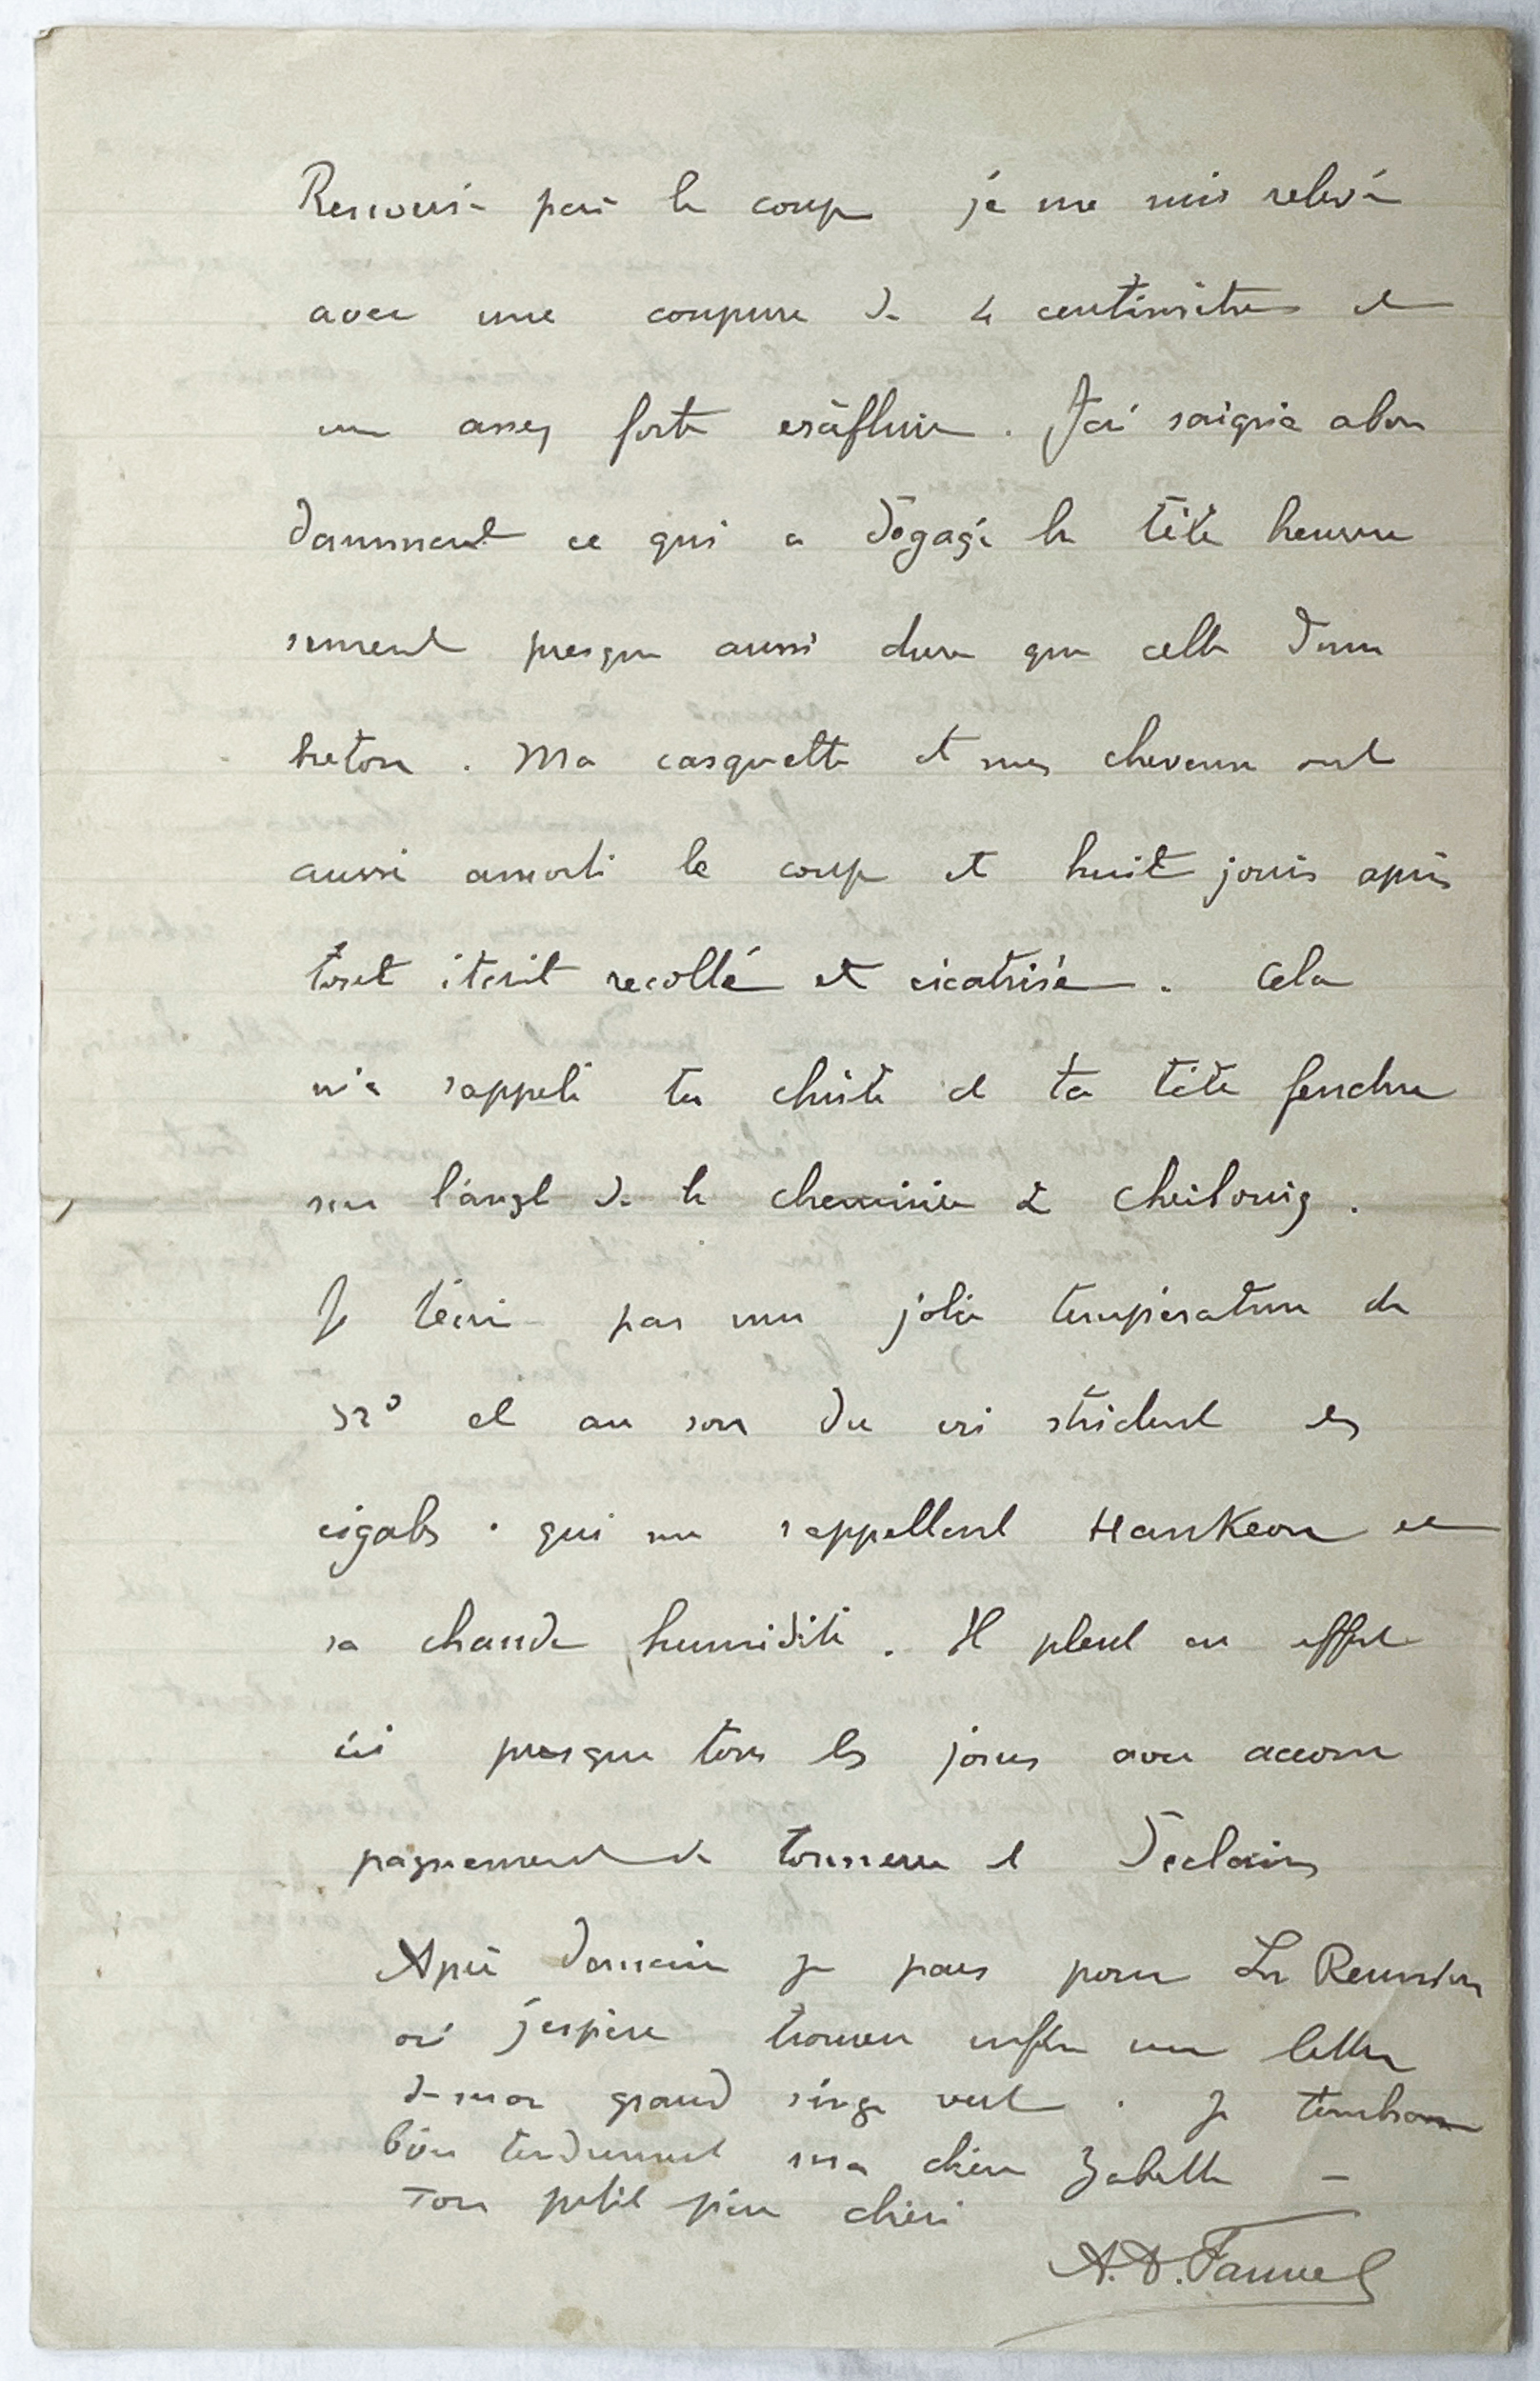 Renversé par le coup je me suis relevé
avec une coupure de 4 centimètres et
une assez forte éraflure. J'ai saigné abon
damment ce qui a dégagé la tête heureu
sement presque aussi dure que celle d'un
breton. Ma casquette et mes cheveux ont
aussi amorti le coup et huit jours après
tout était recollé et cicatrisé. Cela
m'a rappelé ta chute et ta tête fendue
sur l'angle de la cheminée à Cherbourg.
Je t'écris par une jolie température de
32° et au son du cri strident des
cigales qui me rappellent Hankeou et
sa chaude humidité. Il pleut en effet
ici presque tous les jours avec accom
pagnement de tonnerre et d'éclairs
Après demain je pars pour La Réunion
où j'espère trouver enfin une lettre
de mon grand singe vert. Je t'embrasse
bien tendrement ma chère Zabelle -
Ton petit père chéri